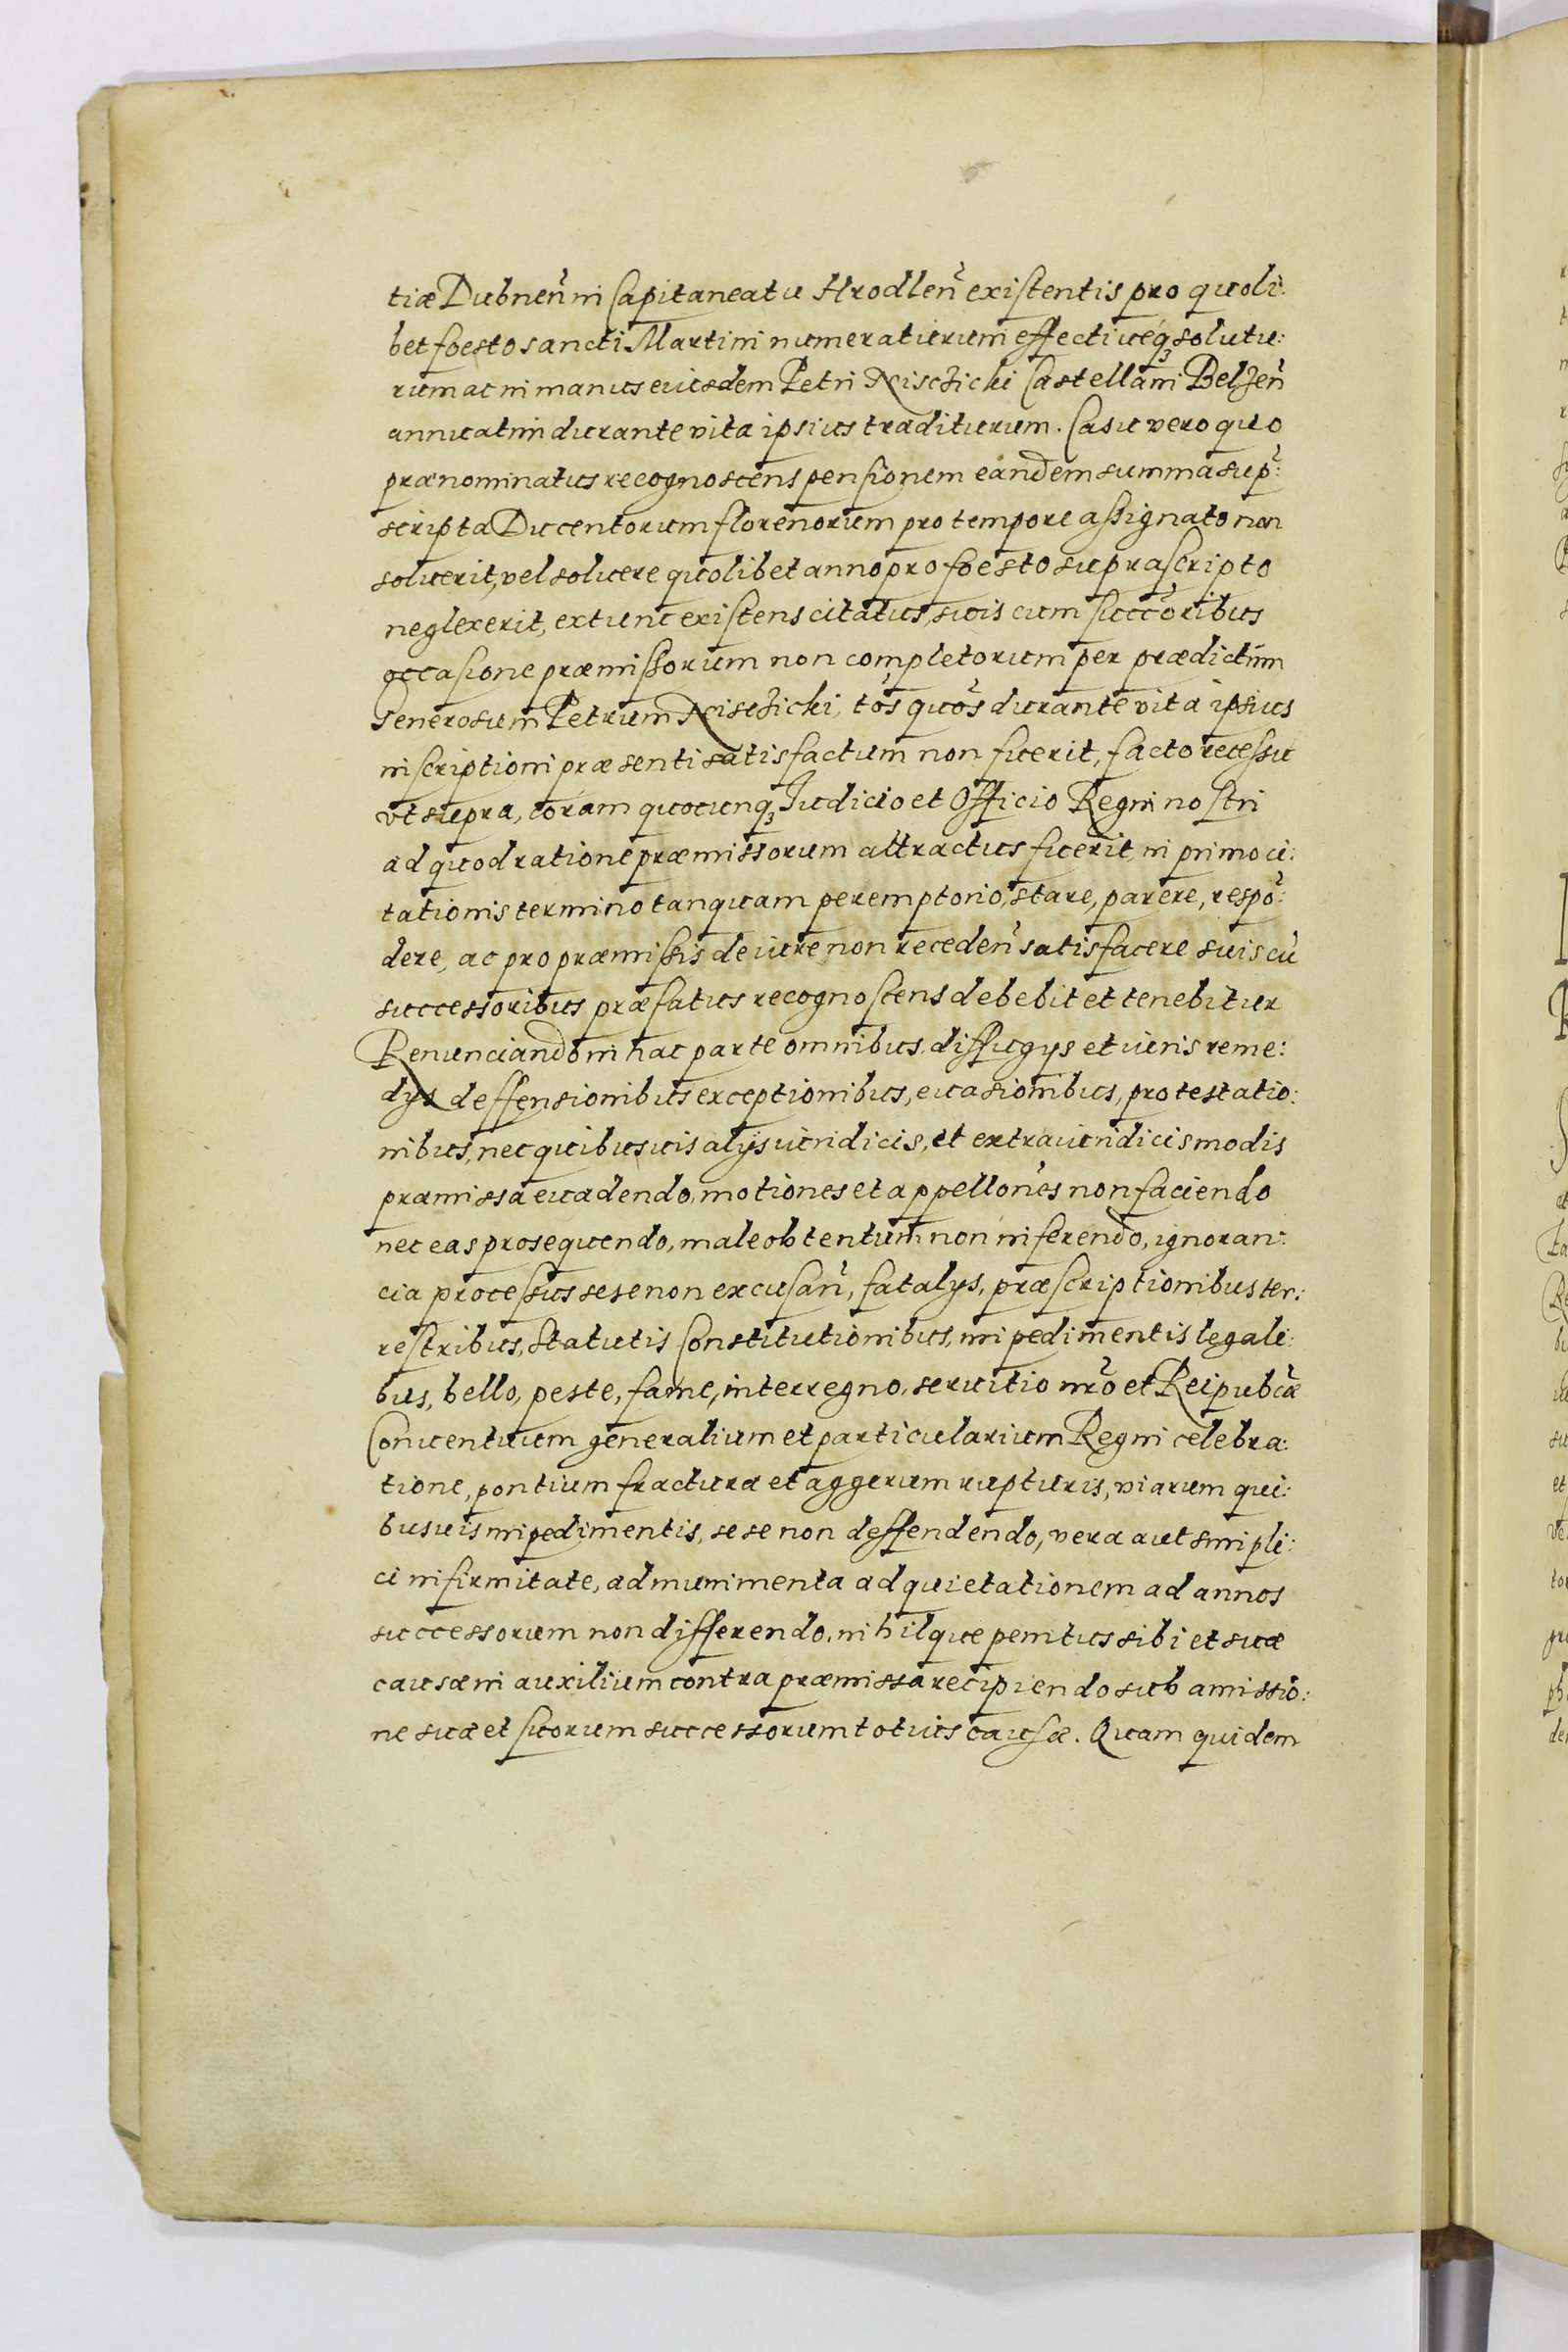 tiæ Dubneñ in Capitaneatu Hrodleñ existentis pro quoli:
bet foesto sancti Martini numeraturum effectiueq; solutu:
rum ac in manus eiusdem Petri Nisczicki Castellani Belzeñ
annuatim durante vita ipsius traditurum. Casu vero quo
prænominatus recognoscens pensionem eandem summa sup:
scripta Ducentorum florenorum pro tempore assignato non
soluerit, vel soluere quolibet anno pro foesto suprascripto
neglexerit, extunc existens citatus, suis cum succõribus
occasione præmissorum non completorum per prædictum
Generosum Petrum Nisczicki, tõs quõs durante vita ipsius
inscriptioni præsenti satisfactum non fuerit, facto recessu
vt supra, coram quocunq; Iudicio et Officio Regni nostri
ad quod ratione præmissorum attractus fuerit, in primo ci:
tationis termino tanquam peremptorio, stare, parere, respõ:
dere, ac pro præmissis de iure non recedeñ satisfacere suis cũ
successoribus præfatus recognoscens debebit et tenebitur
Renunciando in hac parte omnibus diffugys et iuris reme:
dys deffensionibus exceptionibus, euasionibus, protestatio:
nibus, nec quibusuis alys iuridicis, et extraiuridicis modis
præmissa euadendo, motiones et appellões non faciendo
nec eas prosequendo, male obtentum non inferendo, ignoran:
cia processus sese non excusañ, fatalys, præscriptionibus ter:
restribus, statutis Constitutionibus, impedimentis legali:
bus, bello, peste, fame, interregno, seruitio nrõ et Reipubcæ
Conuentuum generalium et particularium Regni celebra:
tione, pontium fractura et aggerum rupturis, viarum qui:
busuis impedimentis, sese non deffendendo, vera aut simpli:
ci infirmitate, ad munimenta ad quietationem ad annos
successorum non differendo, nihilque penitus sibi et suæ
causæ in auxilium contra præmissa recipiendo sub amissio:
ne suæ et suorum successorum totius causæ. Quam quidem